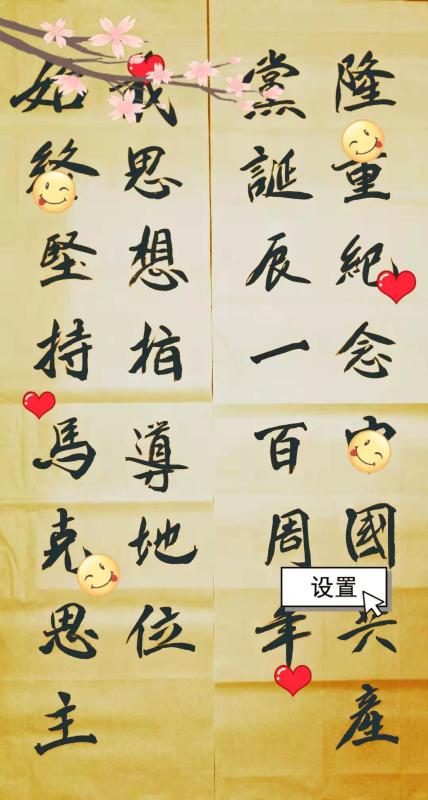 隆重紀念中國共產
黨誕辰一百周年
始終堅持馬克思主
義思想指導地位
设置